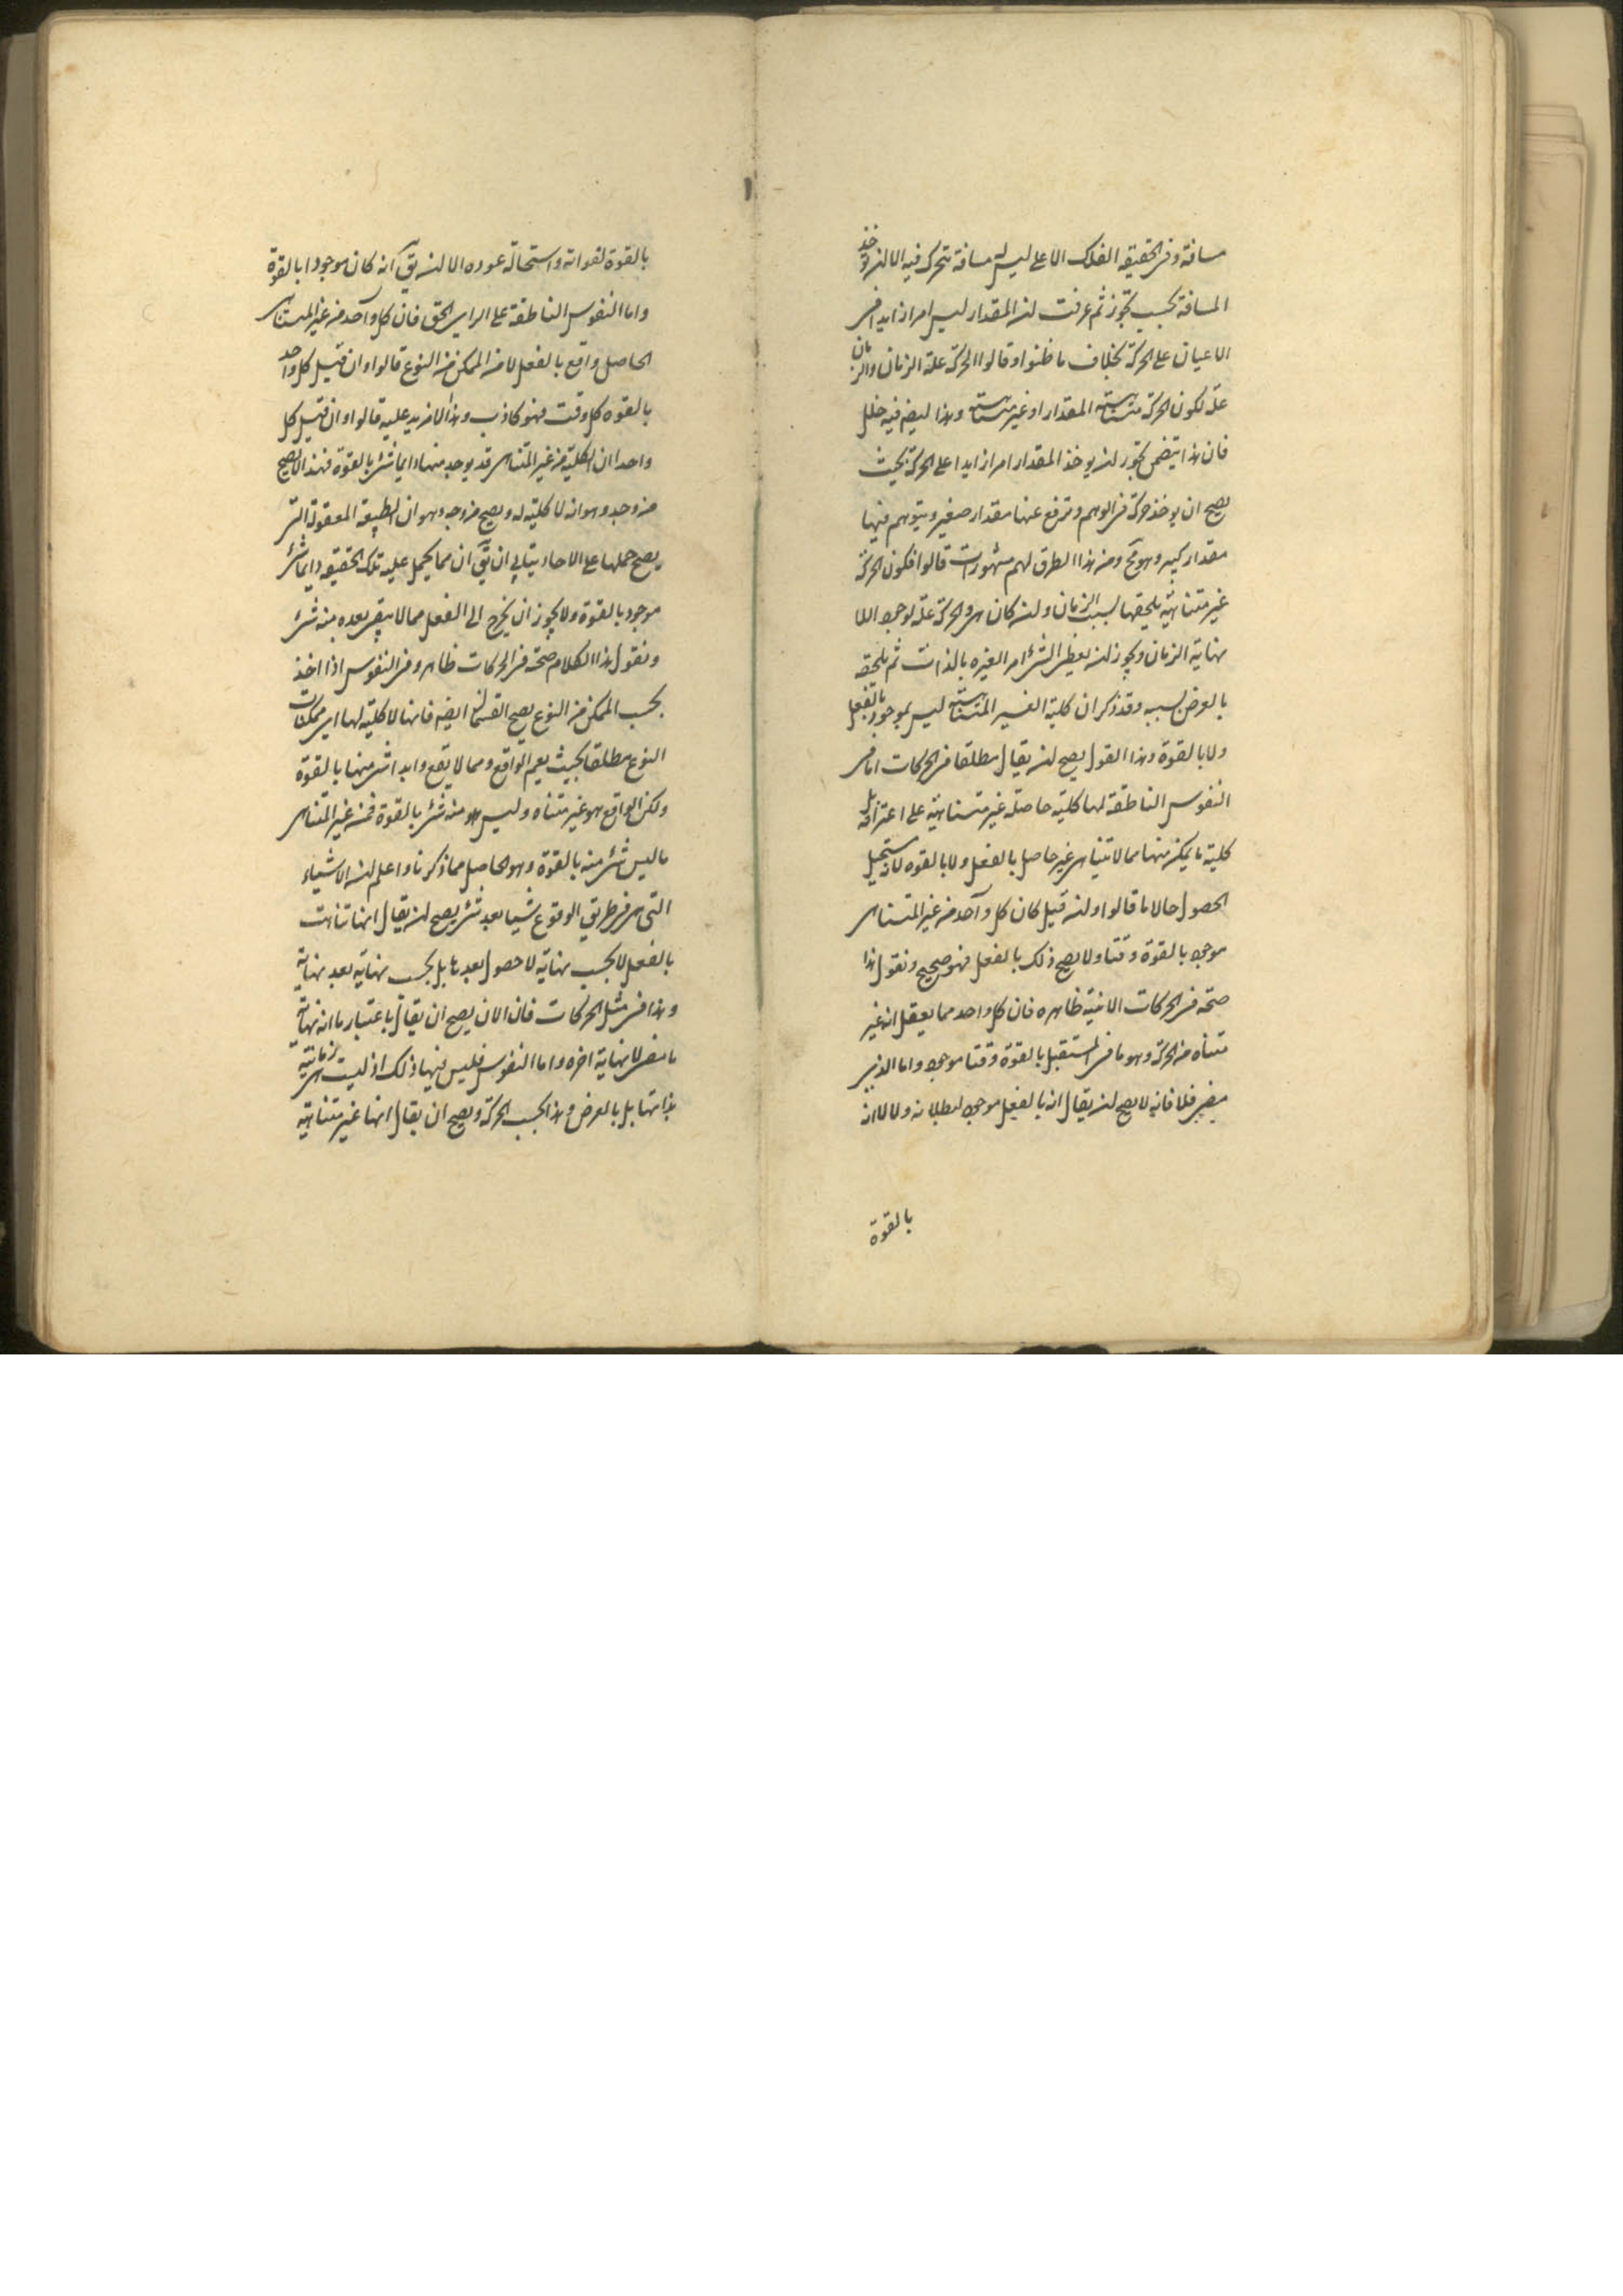 مسافة وفى الحقيقة الفلك الاعلى ليس له مسافة يتحرك فيه الا ان يوخذ
المسافة بحسب تجوز ثم عرفت ان المقدار ليس امرا زايدا فى
الاعيان على الحركة بخلاف ما ظنوا وقالوا الحركة علة الزمان والزمان
علة لكون الحركة متناهية المقدار او غير متناهية وهذا ايضا فيه خلل
فان هذا يتضمن تجوز ان يوخذ المقدار امرا زايدا على الحركة بحيث
يصح ان يوخذ حركة فى الوهم وترفع عنها مقدار صغير ويتوهم فيها
مقدار كبير وهو مح ومن هذا الطرق لهم مشهورات قالوا فكون الحركة
غير متناهية يلحقها بسبب الزمان وان كان هى والحركة علة لوجود اللا
نهاية الزمان ويجوز ان يعطى الشئ امرا لغيره بالذات ثم يلحقه
بالعرض بسببه وقد ذكر ان كلية الغير المتناهية ليس بموجود بالفعل
ولا بالقوة وهذا القول يصح ان يقال مطلقا فى الحركات اما فى
النفوس الناطقة لها كلية حاصلة غير متناهية على اعترافه بل
كلية ما يمكن منها مما لا تتناهى غير حاصل بالفعل ولا بالقوه لانه مستحيل
الحصول حالا ما قالوا وان قيل كان كل واحد من غير المتناهى
موجود بالقوة وقتا ولا يصح ذلك بالفعل فهو صحيح ونقول هذا
صحته فى الحركات الاتية ظاهره فان كل واحد مما يعقل انه غير
متناه من الحركة وهو ما فى المستقبل بالقوة وقتا موجود واما الذى
مضى فلا فانه لا يصح ان يقال انه بالفعل موجود لبطلانه ولا لا انه
بالقوة
بالقوة لفواته واستحالة عوده الا ان يق انه كان موجودا بالقوة
واما النفوس الناطقة على الراى الحق فان كل واحد من غير المتناهى
الحاصل واقع بالفعل لا من الممكن من النوع قالوا وان قيل كل واحد
بالقوه كل وقت فهو كاذب وهذا لا مزيد عليه قالوا وان قيل كل
واحدا ان الكلية من غير المتناهى قد يوجد منها دايما شئ بالقوة فهذا لا يصح
من وجه وهو انه لا كلية له ويصح من وجه وهو ان الطبيعة المعقولة التى
يصح حملها على الاحاد يتاتى ان يق ان مما يحمل عليه تلك الحقيقه دايما شئ
موجود بالقوة ولا يجوز ان يخرج الى الفعل مما لا يبقى بعده منه شئ
ونقول هذا الكلام صحته فى الحركات ظاهر وفى النفوس اذا اخذ
بحسب الممكن من النوع يصح القسمان ايضا فانها لا كلية لها اى ممكنات
النوع مطلقا بحيث يعم الواقع ومما لا يقع وابدا شئ منها بالقوة
ولكن الواقع هو غير متناه وليس هو منه شئ بالقوة فمن غير المتناهى
ما ليس شئ منه بالقوة وهو الحاصل مما ذكرنا واعلم ان الاشياء
التى هى فى طريق الوقوع شيا بعد شئ يصح ان يقال انها تناهت
بالفعل لا بحسب نهاية لا حصول بعدها بل بحسب نهاية بعد نهاية
وهذا فى مثل الحركات فان الان يصح ان يقال باعتبار ما انه نهاية
ما مضى لا نهاية اخره واما النفوس فليس فيها ذلك اذ ليست هى زمانية
بذاتها بل بالعرض وهذا بحسب الحركة ويصح ان يقال انها غير متناهية